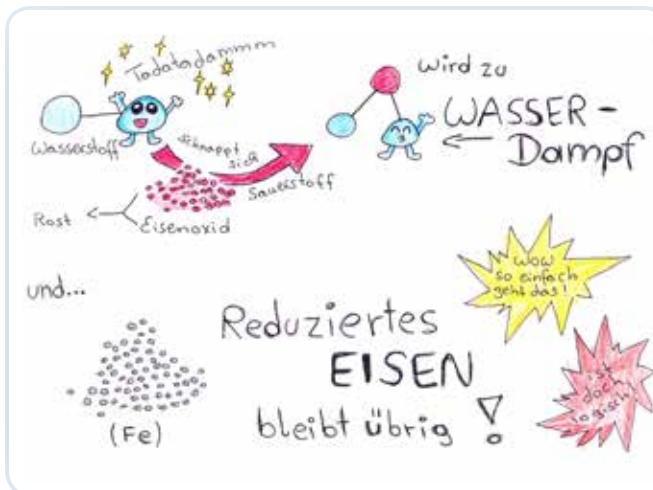 Tadatadammm
Wasserstoff
schnappt
sich
Sauerstoff
Rost
Eisenoxid
wird zu
WASSER-
Dampf
und...
(Fe)
Reduziertes
EISEN
bleibt übrig !
Wow
so einfach
geht das!
ist
doch
logisch